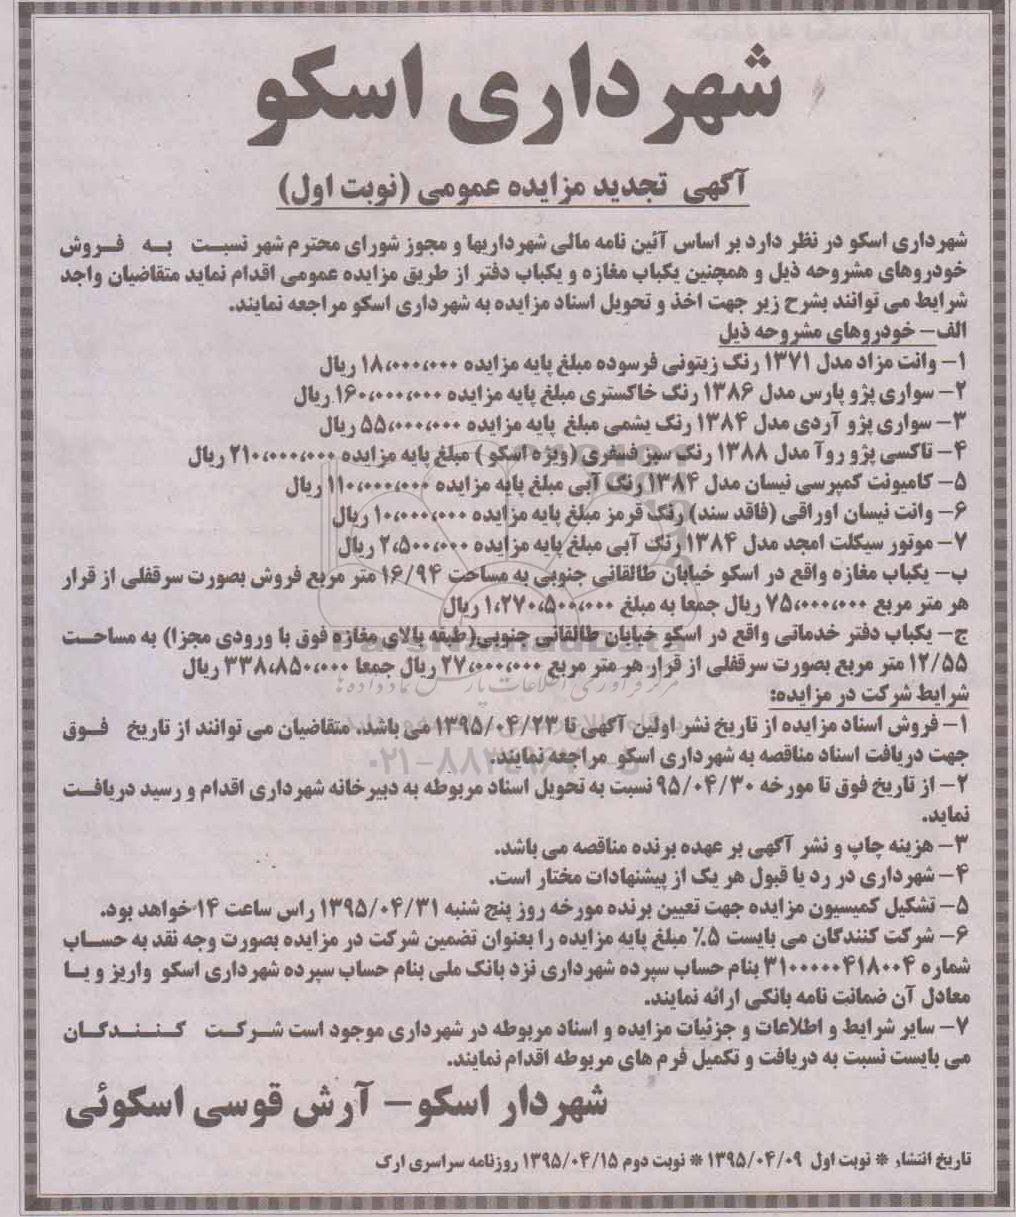 شهرداری اسکو
آگهی تجدید مزایده عمومی (نوبت اول)
شهرداری اسکو در نظر دارد بر اساس آئین نامه مالی شهرداریها و مجوز شورای محترم شهر نسبت به فروش
خودروهای مشروحه ذیل و همچنین یکباب مغازه و یکباب دفتر از طریق مزایده عمومی اقدام نماید متقاضیان واجد
شرایط می توانند بشرح زیر جهت اخذ و تحویل اسناد مزایده به شهرداری اسکو مراجعه نمایند.
الف- خودروهای مشروحه ذیل
۱- وانت مزاد مدل ۱۳۷۱ رنگ زیتونی فرسوده مبلغ پایه مزایده ۱۸،۰۰۰،۰۰۰ ریال
۲- سواری پژو پارس مدل ۱۳۸۶ رنگ خاکستری مبلغ پایه مزایده ۱۶۰،۰۰۰،۰۰۰ ریال
۳- سواری پژو آردی مدل ۱۳۸۴ رنگ یشمی مبلغ پایه مزایده ۵۵،۰۰۰،۰۰۰ ریال
۴- تاکسی پژو روآ مدل ۱۳۸۸ رنگ سبز فسفری (ویژه اسکو) مبلغ پایه مزایده ۲۱۰،۰۰۰،۰۰۰ ریال
۵- کامیونت کمپرسی نیسان مدل ۱۳۸۴ رنگ آبی مبلغ پایه مزایده ۱۱۰،۰۰۰،۰۰۰ ریال
۶- وانت نیسان اوراقی (فاقد سند) رنگ قرمز مبلغ پایه مزایده ۱۰،۰۰۰،۰۰۰ ریال
۷- موتور سیکلت امجد مدل ۱۳۸۴ رنگ آبی مبلغ پایه مزایده ۲،۵۰۰،۰۰۰ ریال
ب- یکباب مغازه واقع در اسکو خیابان طالقانی جنوبی به مساحت ۱۶/۹۴ متر مربع فروش بصورت سرقفلی از قرار
هر متر مربع ۷۵،۰۰۰،۰۰۰ ریال جمعا به مبلغ ۱،۲۷۰،۵۰۰،۰۰۰ ریال
ج- یکباب دفتر خدماتی واقع در اسکو خیابان طالقانی جنوبی(طبقه بالای مغازه فوق با ورودی مجزا) به مساحت
۱۲/۵۵ متر مربع بصورت سرقفلی از قرار هر متر مربع ۲۷،۰۰۰،۰۰۰ ریال جمعا ۳۳۸،۸۵۰،۰۰۰ ریال
شرایط شرکت در مزایده:
۱- فروش اسناد مزایده از تاریخ نشر اولین آگهی تا ۱۳۹۵/۰۴/۲۳ می باشد. متقاضیان می توانند از تاریخ فوق
جهت دریافت اسناد مناقصه به شهرداری اسکو مراجعه نمایند.
۲- از تاریخ فوق تا مورخه ۹۵/۰۴/۳۰ نسبت به تحویل اسناد مربوطه به دبیرخانه شهرداری اقدام و رسید دریافت
نماید.
۳- هزینه چاپ و نشر آگهی بر عهده برنده مناقصه می باشد.
۴- شهرداری در رد یا قبول هر یک از پیشنهادات مختار است.
۵- تشکیل کمیسیون مزایده جهت تعیین برنده مورخه روز پنج شنبه ۱۳۹۵/۰۴/۳۱ راس ساعت ۱۴ خواهد بود.
۶- شرکت کنندگان می بایست ۵٪ مبلغ پایه مزایده را بعنوان تضمین شرکت در مزایده بصورت وجه نقد به حساب
شماره ۳۱۰۰۰۰۰۴۱۸۰۰۴ بنام حساب سپرده شهرداری نزد بانک ملی بنام حساب سپرده شهرداری اسکو واریز و یا
معادل آن ضمانت نامه بانکی ارائه نمایند.
۷- سایر شرایط و اطلاعات و جزئیات مزایده و اسناد مربوطه در شهرداری موجود است شرکت کنندگان
می بایست نسبت به دریافت و تکمیل فرم های مربوطه اقدام نمایند.
شهردار اسکو- آرش قوسی اسکوئی
تاریخ انتشار * نوبت اول ۱۳۹۵/۰۴/۰۹ * نوبت دوم ۱۳۹۵/۰۴/۱۵ روزنامه سراسری ارک